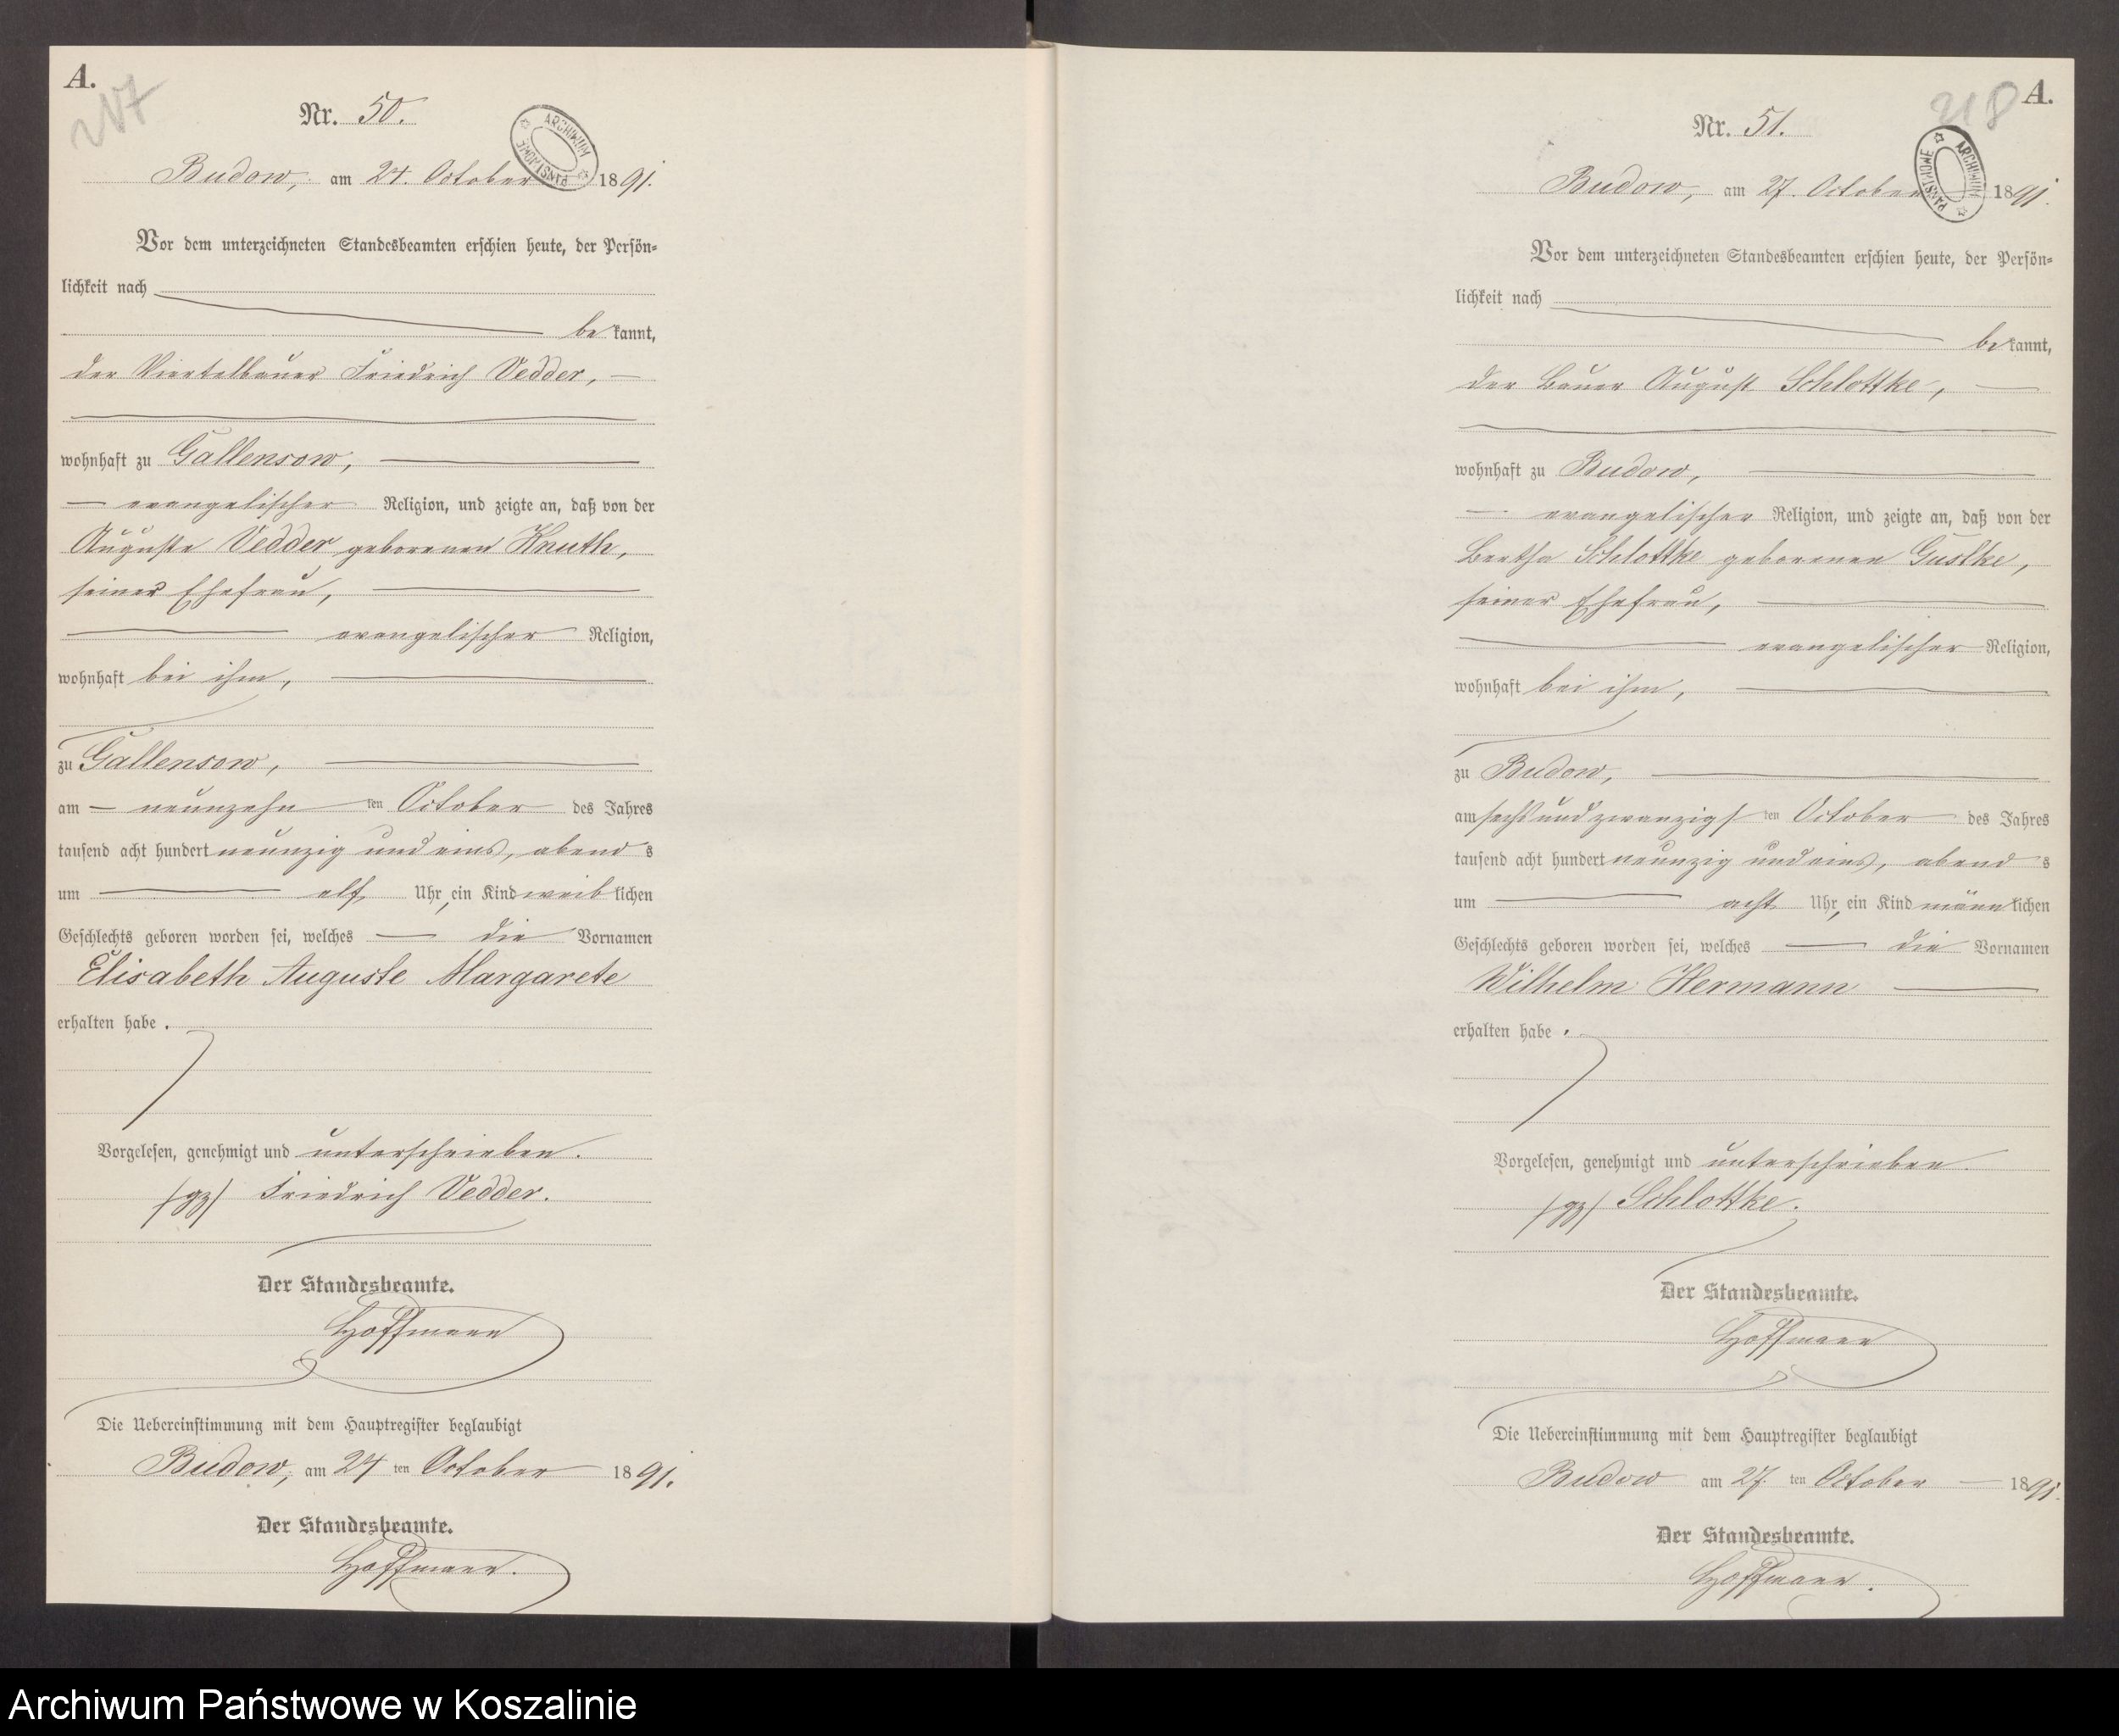 A.
217
Nr. 50.
ARCHIWUM PAŃSTWOWE
Budow, am 24. October 1891.
Vor dem unterzeichneten Standesbeamten erschien heute, der Persön-
lichkeit nach
be kannt,
der Viertelbauer Friedrich Vedder,
wohnhaft zu Gallensow,
evangelischer Religion, und zeigte an, daß von der
Auguste Vedder geborenen Knuth,
seiner Ehefrau,
evangelischer Religion,
wohnhaft bei ihm,
zu Gallensow,
am neunzehn ten October des Jahres
tausend acht hundert neunzig und eins, abend s
um elf Uhr, ein Kind weib lichen
Geschlechts geboren worden sei, welches die Vornamen
Elisabeth Auguste Margarete
erhalten habe.
Vorgelesen, genehmigt und unterschrieben.
/gz/ Friedrich Vedder.
Der Standesbeamte.
Hoffmann
Die Uebereinstimmung mit dem Hauptregister beglaubigt
Budow, am 24 ten October 1891.
Der Standesbeamte.
Hoffmann.
218
A.
Nr. 51.
ARCHIWUM PAŃSTWOWE
Budow, am 27. October 1891.
Vor dem unterzeichneten Standesbeamten erschien heute, der Persön-
lichkeit nach
be kannt,
der Bauer August Schlottke,
wohnhaft zu Budow,
evangelischer Religion, und zeigte an, daß von der
Bertha Schlottke geborenen Gustke,
seiner Ehefrau,
evangelischer Religion,
wohnhaft bei ihm,
zu Budow,
am sechsundzwanzigs ten October des Jahres
tausend acht hundert neunzig und eins, abend s
um acht Uhr, ein Kind männ lichen
Geschlechts geboren worden sei, welches die Vornamen
Wilhelm Hermann
erhalten habe.
Vorgelesen, genehmigt und unterschrieben.
/gz/ Schlottke.
Der Standesbeamte.
Hoffmann
Die Uebereinstimmung mit dem Hauptregister beglaubigt
Budow am 27. ten October 1891.
Der Standesbeamte.
Hoffmann.
Archiwum Państwowe w Koszalinie